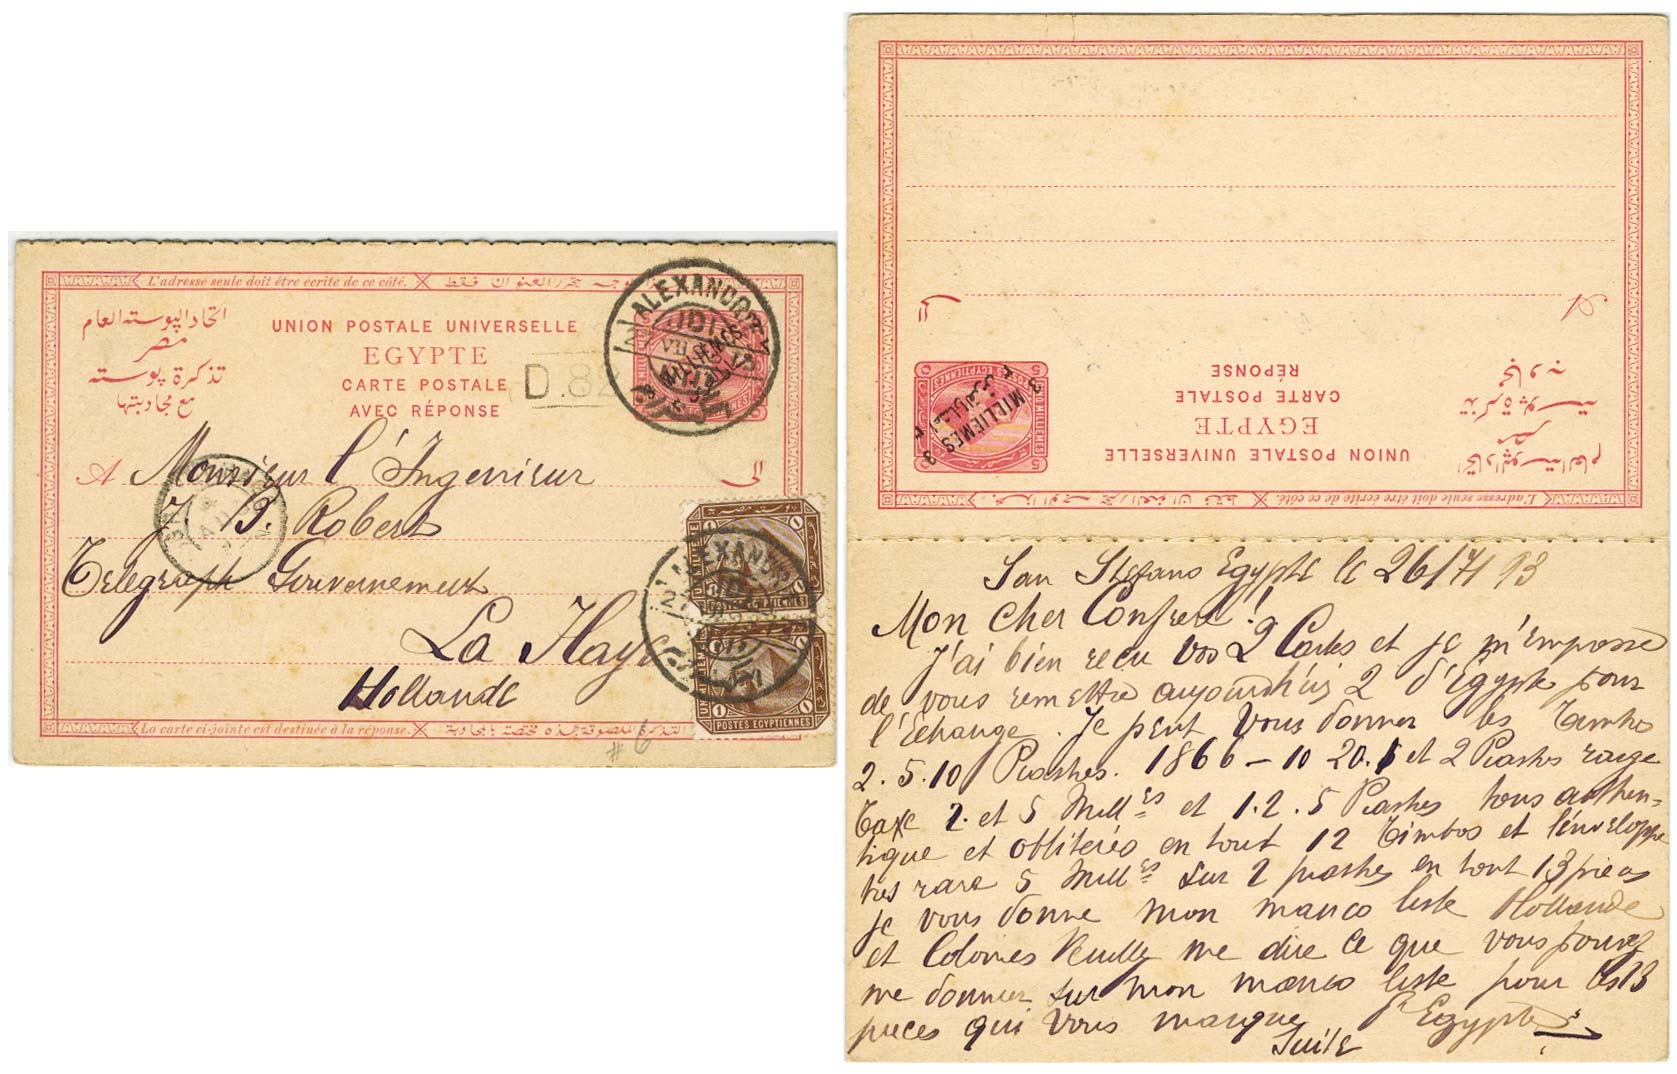 L'adresse seule doit être écrite de ce côté.
اتحاد البوسته العام
مصر
تذكرة بوسته
مع مجاوبتها
UNION POSTALE UNIVERSELLE
EGYPTE
CARTE POSTALE
AVEC RÉPONSE
D.82
ALEXANDRI
3 MILLIEMES
A Monsieur l'Ingenieur
J. B. Robert
Telegraph Gouvernement
La Haye
Hollande
ALEXANDRI
UN MILLIEME
POSTES EGYPTIENNES
La carte ci-jointe est destinée à la réponse.
#6
A
RÉPONSE
CARTE POSTALE
EGYPTE
UNION POSTALE UNIVERSELLE
3 MILLIEMES 3
5 MILLIEMES 5
L'adresse seule doit être écrite de ce côté.
San Stefano Egypte le 26/7/93
Mon cher Confrere!
J'ai bien recu vos 2 Cartes et je m'empresse
de vous remettre aujourd'hui 2 d'Egypte pour
l'echange. Je peut vous donner les Timbres
2. 5. 10 Piastres. 1866 – 10 20. et 2 Piastres rouge
Taxe 2. et 5 Mill.es et 1. 2. 5 Piastres tous authen=
tique et oblitérés en tout 12 Timbos et l'enveloppe
tres rare 5 Mill.es sur 2 piastres en tout 13 pieces
je vous donne mon manco liste Hollande
et Colonies Veuillez me dire ce que vous pouvez
me donner sur mon manco liste pour les 13
pieces qui vous manque Egypte
Suite